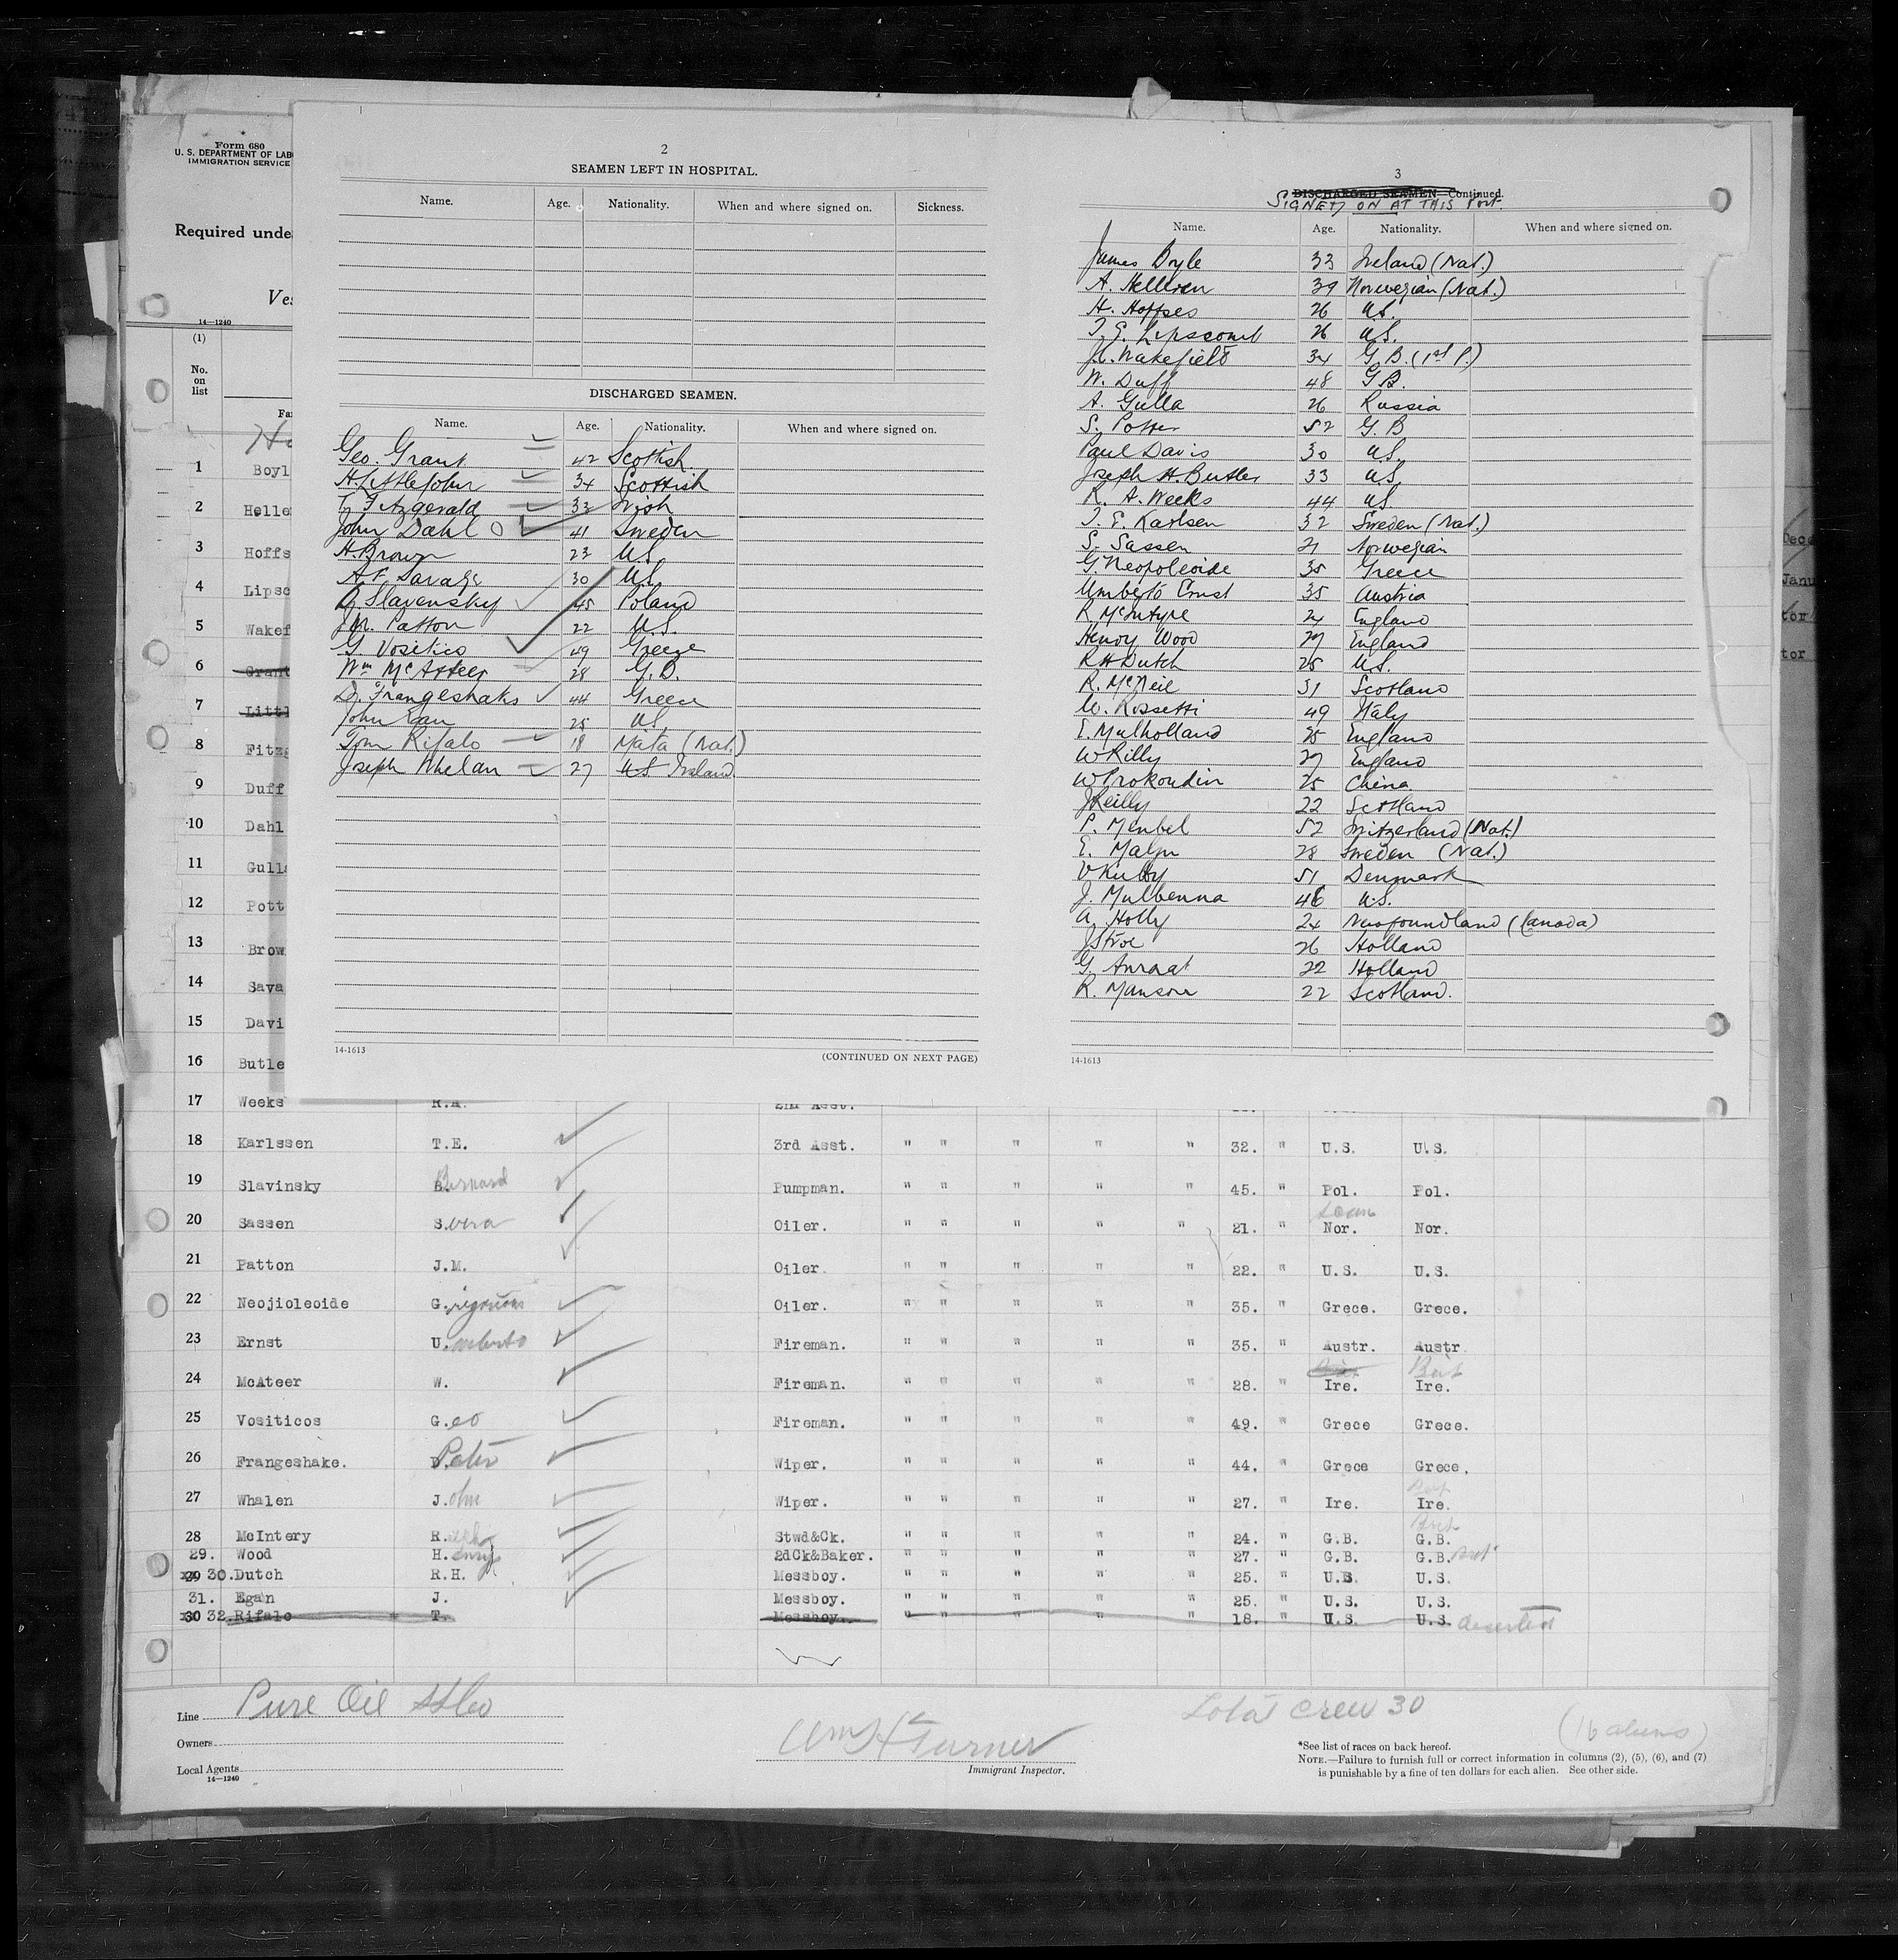 Form 680
U. S. DEPARTMENT OF LAB
IMMIGRATION SERVICE
Required unde
Ves
14—1240
(1)
No.
on
list
Fa
1 Boyl
2 Helle
3 Hoffs
4 Lipsc
5 Wakef
6 Grant
7 Littl
8 Fitzg
9 Duff
10 Dahl
11 Gull
12 Pott
13 Brow
14 Sava
15 Davi
16 Butle
2
SEAMEN LEFT IN HOSPITAL.
Name. Age. Nationality. When and where signed on. Sickness.
DISCHARGED SEAMEN.
Name. Age. Nationality. When and where signed on.
Geo. Grant 42 Scottish
H. Littlejohn 34 Scottish
Fitzgerald 33 Irish
John Dahl 41 Sweden
H. Brown 23 U.S.
A F Savage 30 U.S.
B. Slavensky 45 Poland
J.M. Patton 22 U.S.
G. Vositico 49 Greece
Wm McAteer 28 G.B.
D. Frangeshaks 44 Greece
John Egan 25 US
Tom Rifalo 18 Malta (Nat.)
Joseph Whelan 27 US Ireland
14-1613
(CONTINUED ON NEXT PAGE)
3
DISCHARGED SEAMEN—Continued.
SIGNED ON AT THIS Port.
Name. Age. Nationality. When and where signed on.
James Boyle 33 Ireland (Nat.)
A. Hellren 39 Norwegian (Nat.)
H. Hoffses 26 U.S.
T. E. Lipscomb 26 U.S.
J.C. Wakefield 34 G.B. (1st P.)
W. Duff 48 G.B.
A. Gulla 26 Russia
S. Potter 52 G.B
Paul Davis 30 U.S.
Joseph H. Butler 33 U.S
R. A. Weeks 44 U.S.
T. E. Karlsen 32 Sweden (Nat.)
S. Sassen 21 Norwegian
G. Neopoleoide 35 Greece
Umberto Ernst 35 Austria
R McIntyre 24 England
Henry Wood 27 England
R H Dutch 25 U.S.
R. McNeil 31 Scotland
W. Rossetti 49 Italy
E. Mulholland 25 England
W Killy 27 England
W Prokoudin 25 China
J Reilly 22 Scotland
P. Menbel 52 Switzerland (Nat.)
E. Malm 28 Sweden (Nat.)
V Kulby 51 Denmark
J. Mulbenna 46 U.S.
A. Holly 24 Newfoundland (Canada)
J Stroe 26 Holland
G. Anraat 22 Holland
R. Manson 22 Scotland.
14-1613
17 Weeks R.A. 2nd Asst.
18 Karlssen T.E. 3rd Asst. " " " " " 32. " U.S. U.S.
19 Slavinsky B. Bernard Pumpman. " " " " " 45. " Pol. Pol.
20 Sassen S. Oiler. " " " " " 21. " Nor. Nor.
21 Patton J.M. Oiler. " " " " " 22. " U.S. U.S.
22 Neojioleoide G. Oiler. " " " " " 35. " Grece. Grece.
23 Ernst U.mberto Fireman. " " " " " 35. " Austr. Austr
24 McAteer W. Fireman. " " " " " 28. " Ire. Brit Ire.
25 Vositicos G.eo Fireman. " " " " " 49. " Grece Grece.
26 Frangeshake. Peter Wiper. " " " " " 44. " Grece Grece.
27 Whalen J.ohn Wiper. " " " " " 27. " Ire. Ire.
28 McIntery R. Stwd&Ck. " " " " " 24. " G.B. Brit G.B.
29. Wood H.enry 2dCk&Baker. " " " " " 27. " G.B. G.B.
29 30. Dutch R.H. Messboy. " " " " " 25. " U.S. U.S.
31. Egan J. Messboy. " " " " " 25. " U.S. U.S.
30 32. Rifalo T. Messboy. " " " " " 18. " U.S. U.S. deserted
Line Pure Oil
Owners
Local Agents
14—1240
Wm H Turner
Immigrant Inspector.
Total crew 30
(16 aliens)
*See list of races on back hereof.
NOTE.—Failure to furnish full or correct information in columns (2), (5), (6), and (7)
is punishable by a fine of ten dollars for each alien. See other side.